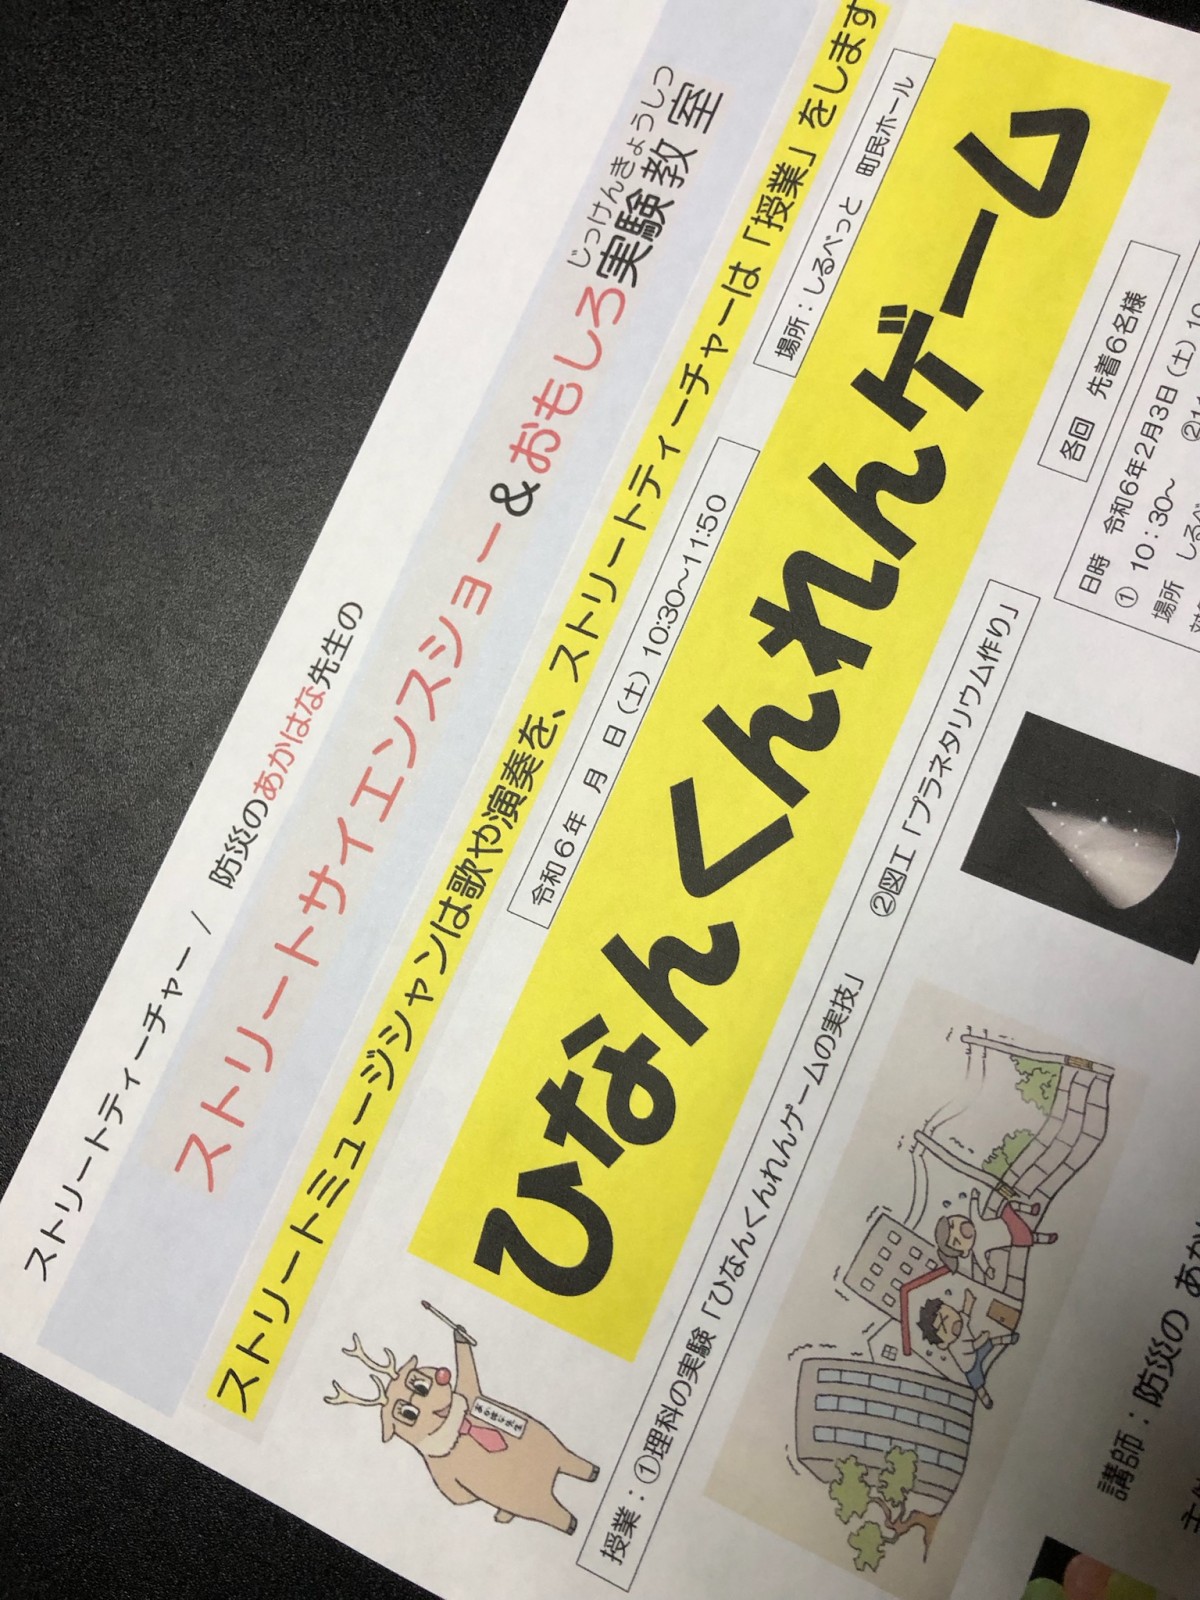 ストリートティーチャー / 防災のあかはな先生の
じっけんきょうしつ
ストリートサイエンスショー＆おもしろ実験教室
ストリートミュージシャンは歌や演奏を、ストリートティーチャーは「授業」をします
令和６年　月　日（土）10:30～11:50
場所：しるべっと　町民ホール
ひなんくんれんゲーム
あかはな先生
授業：①理科の実験「ひなんくんれんゲームの実技」
②図工「プラネタリウム作り」
各回　先着６名様
日時　令和６年２月３日（土）10
①　10：30～　②11
場所　しるべ
講師：防災の　あか